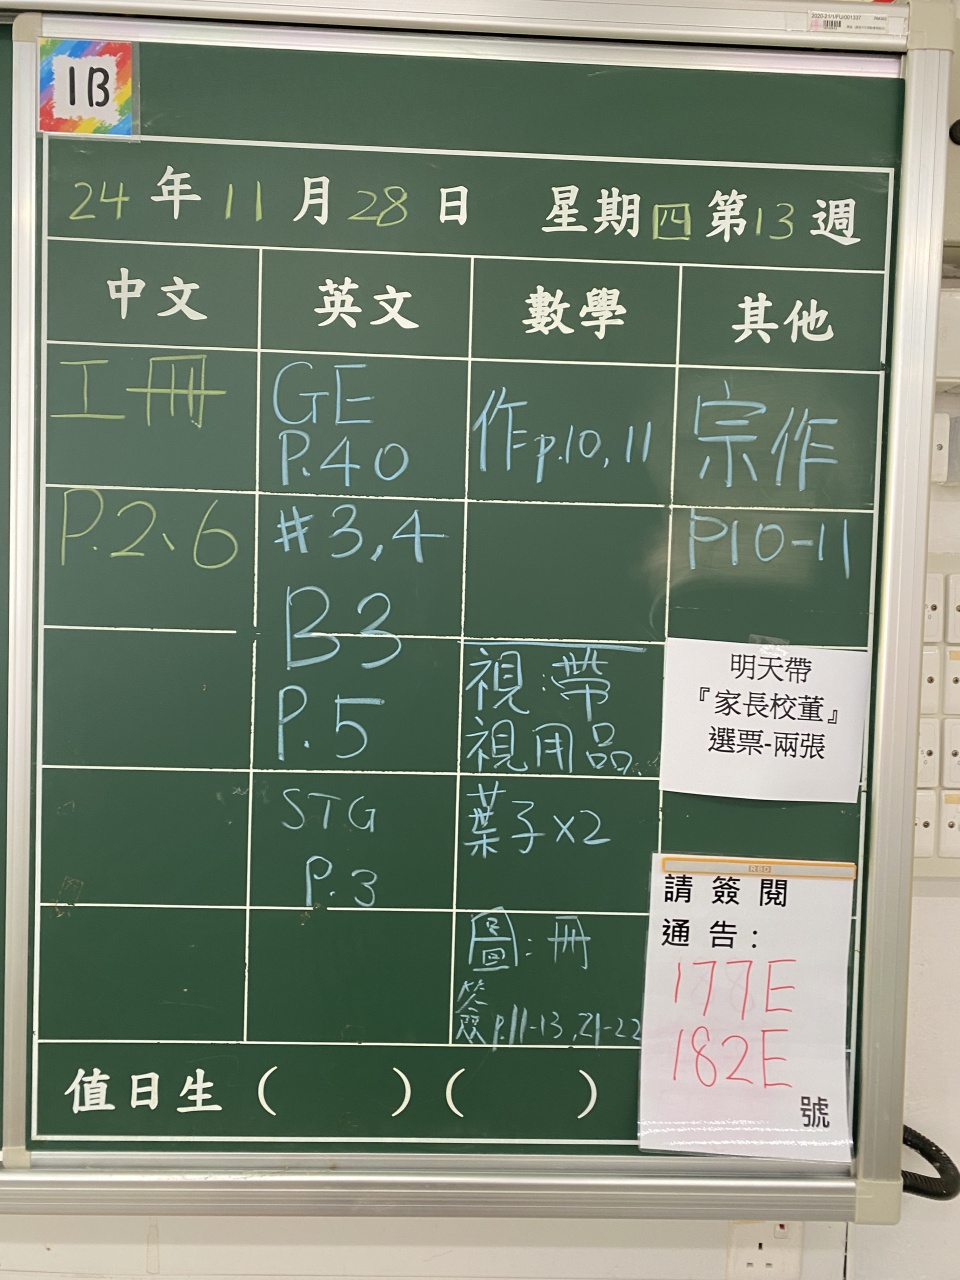 1B
24年11月28日 星期四第13週
中文
英文
數學
其他
工冊
P.2、6
GE
P.40
#3,4
B3
P.5
STG
P.3
作p.10,11
視:帶
視用品.
葉子x2
圖:冊
簽p.11-13,21-22
宗作
P10-11
明天帶
『家長校董』
選票-兩張
請簽閱
通告:
177E
182E
號
值日生 ( ) ( )